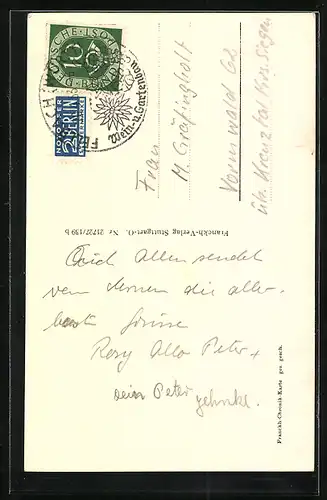 DEUTSCHE BUNDESPOST
10
NOTOPFER
2 BERLIN
STEUERMARKE
Wein- u. Gartenbau
Frau
M. Gräfinghoff
Vormwald 68
üb. Kreuztal Krs. Siegen
Franckh-Verlag Stuttgart-O. Nr. 21727/139 b
Euch Allen sendet
von Herzen die aller-
Grüsse
Rosy Otto Peter +
Dein Peter
Franckh-Chromik-Karte ges. gesch.